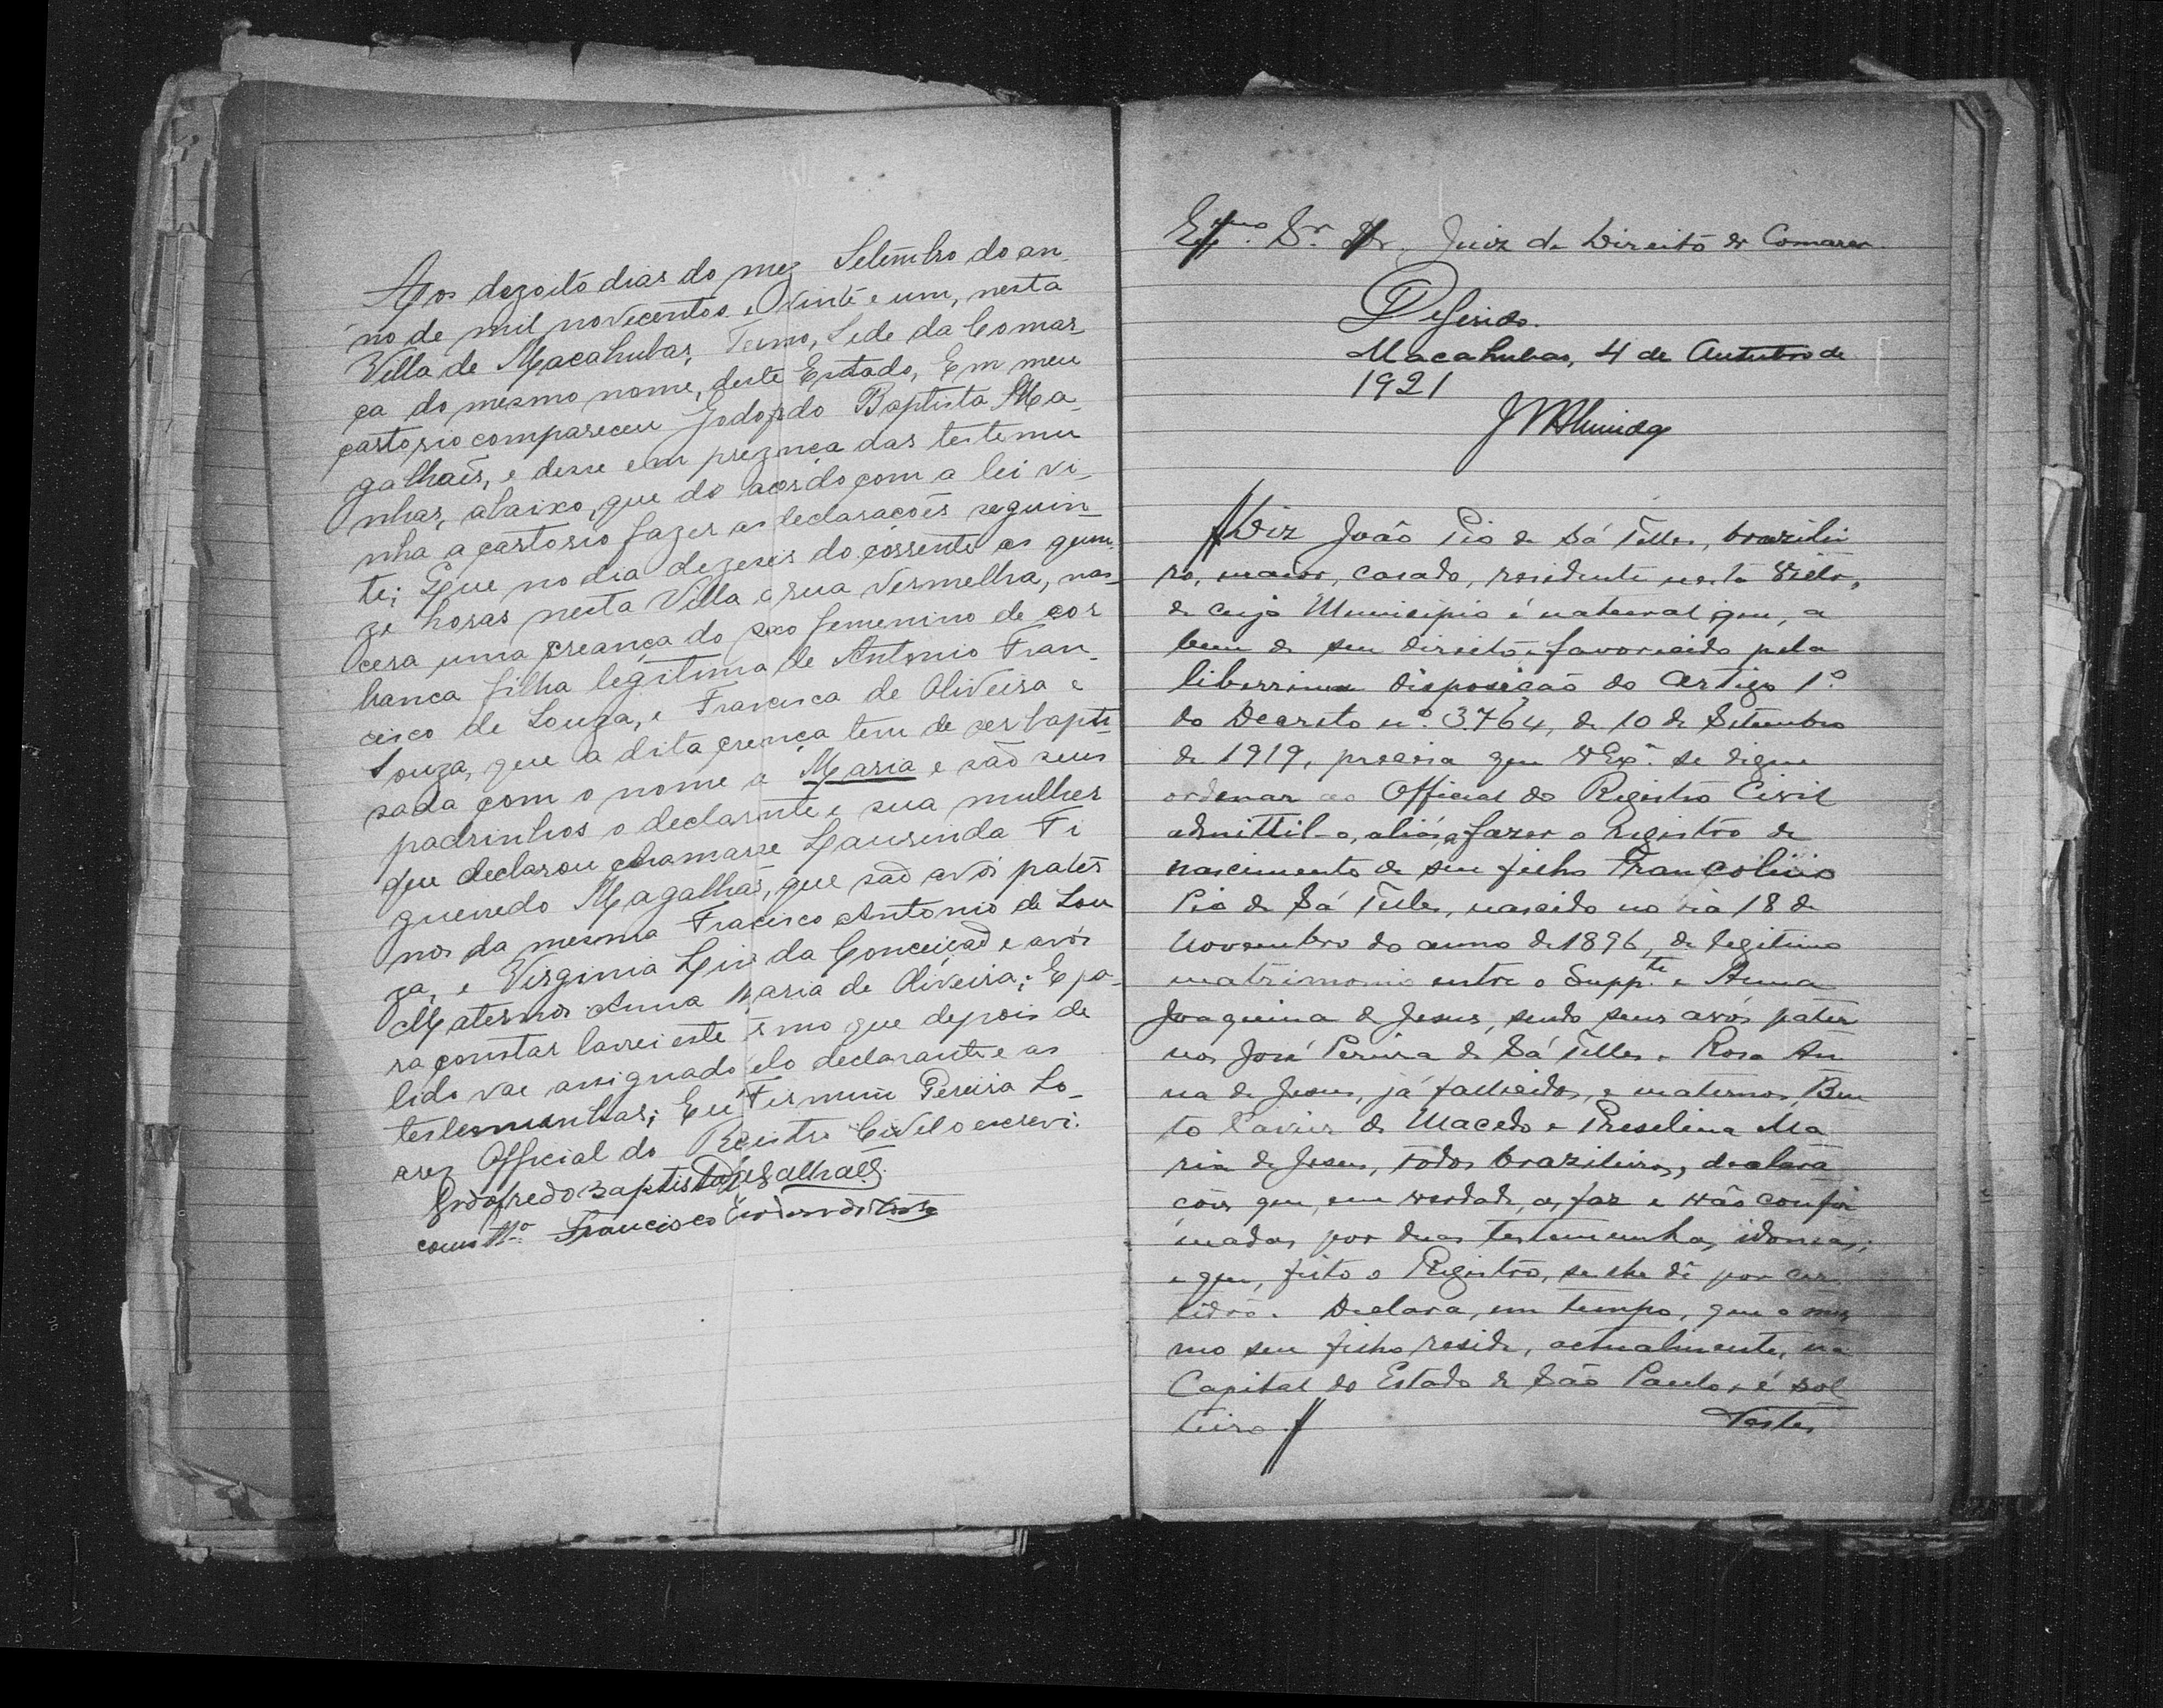 Aos dezoito dias do mez Setembro do an-
no de mil novecentos e vinte e um, nesta
Villa de Macahubas, Termo, Sede da Comar-
ca do mesmo nome, deste Estado, Em meu
cartorio compareceu Godofredo Baptista Ma-
galhaês, e desse em prezença das testemu
nhas, abaixo, que do acordo com a lei vi-
nha a cartorio fazer as declaracoês seguin-
te; Que no dia dezeseis do corrente as quin-
ze horas nesta Villa a rua Vermelha, nas-
cera uma creança do sexo femenino de cor
branca filha legitima de Antonio Fran-
cisco de Souza, e Francisca de Oliveira e
Souza, que a dita crença tem de ser bapti-
sada com o nome a Maria e são seus
padrinhos o declarante e sua mulher
que declarou chamarse Laurinda Fi
gueiredo Magalhãs, que são avós pater
nos da mesma Fracisco Antonio de Sou
za, e Virginia da Conceiçaõ e avós
Maternos Anna Maria de Oliveira; E pa-
ra constar lavrei este rmo que depois de
lido vae assignado elo declarante e as
testemunhas; Eu Firmim Pereira Lo-
Official do Registro Civel o escrevi.
Godofredo Baptista Magalhaês.
como tta. Francisco
Exmo. Sr. Dr. Juiz de Direito da Comarca
Deferido.
Macahubas, 4 de Outubro de
1921
JMAlmeida
Diz João Pio de Sá Telles, brazilei
ro, maior, casado, residente nesta Villa,
de cujo Municipio é natural que, a
bem de seu direito e favorecido pela
liberrima disposição do Artigo 1º.
do Decreto nº. 3.764, de 10 de Setembro
de 1919, precisa que VExª. se digne
ordenar ao Official do Registro Civil
admittil-o, aliás, a fazer o registro de
nascimento de seu filho Françolinio
Pio de Sá Telles, nascido no dia 18 de
Novembro do anno de 1896, de legitimo
matrimonio entre o Suppte. e Anna
Joaquina de Jesus, sendo seus avós pater
nos José Pereira de Sá Telles e Rosa An
na de Jesus, já fallecidos, e maternos Ben
to Xavier de Macedo e Preselina Ma
ria de Jesus, todos brazileiros, declara
cões que, em verdade, as faz e vão confir
madas por duas testemunhas idoneas;
e que, feito o Registro, se lhe dê por cer
tidão. Declara, em tempo, que o mes
mo seu filho reside, actualmente, na
Capital do Estado de São Paulo, e é sol
teiro.
Testes